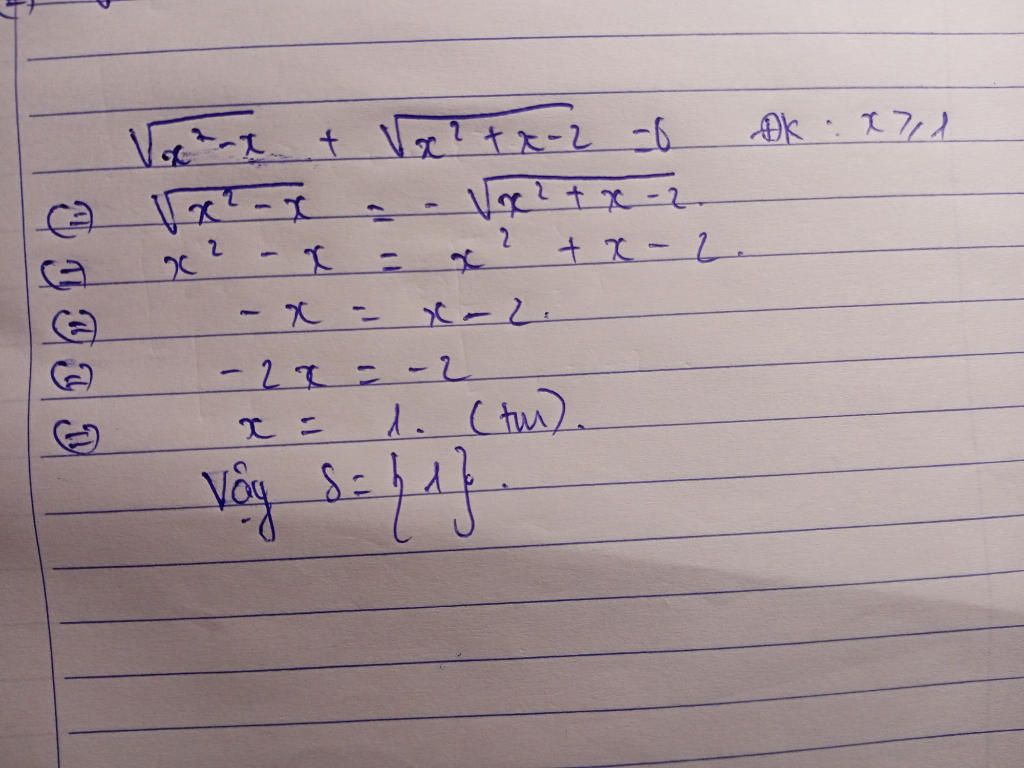 √(x² - x) + √(x² + x - 2) = 0 ĐK : x ⩾ 1
(=) √(x² - x) = - √(x² + x - 2).
(=) x² - x = x² + x - 2.
(=) - x = x - 2.
(=) - 2x = - 2
(=) x = 1. (tm).
Vậy S = {1}.